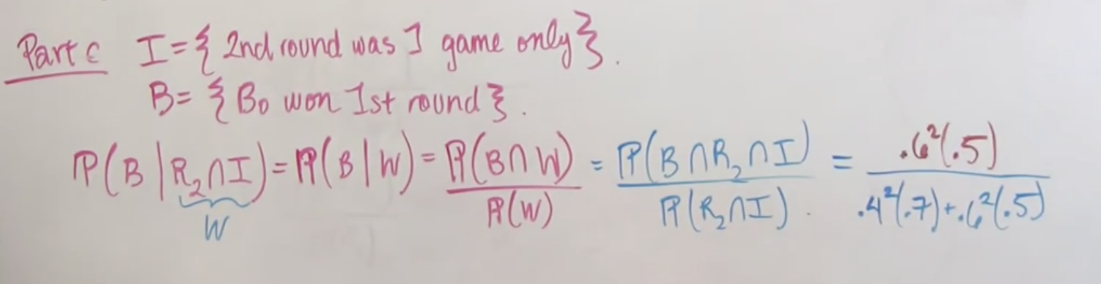 Part c I = { 2nd round was 1 game only }.
B = { Bo won 1st round }.
P(B | R₂∩I) = P(B | W) = P(B∩W) / P(W) = P(B∩R₂∩I) / P(R₂∩I) = .6²(.5) / .4²(.7)+.6²(.5)
W